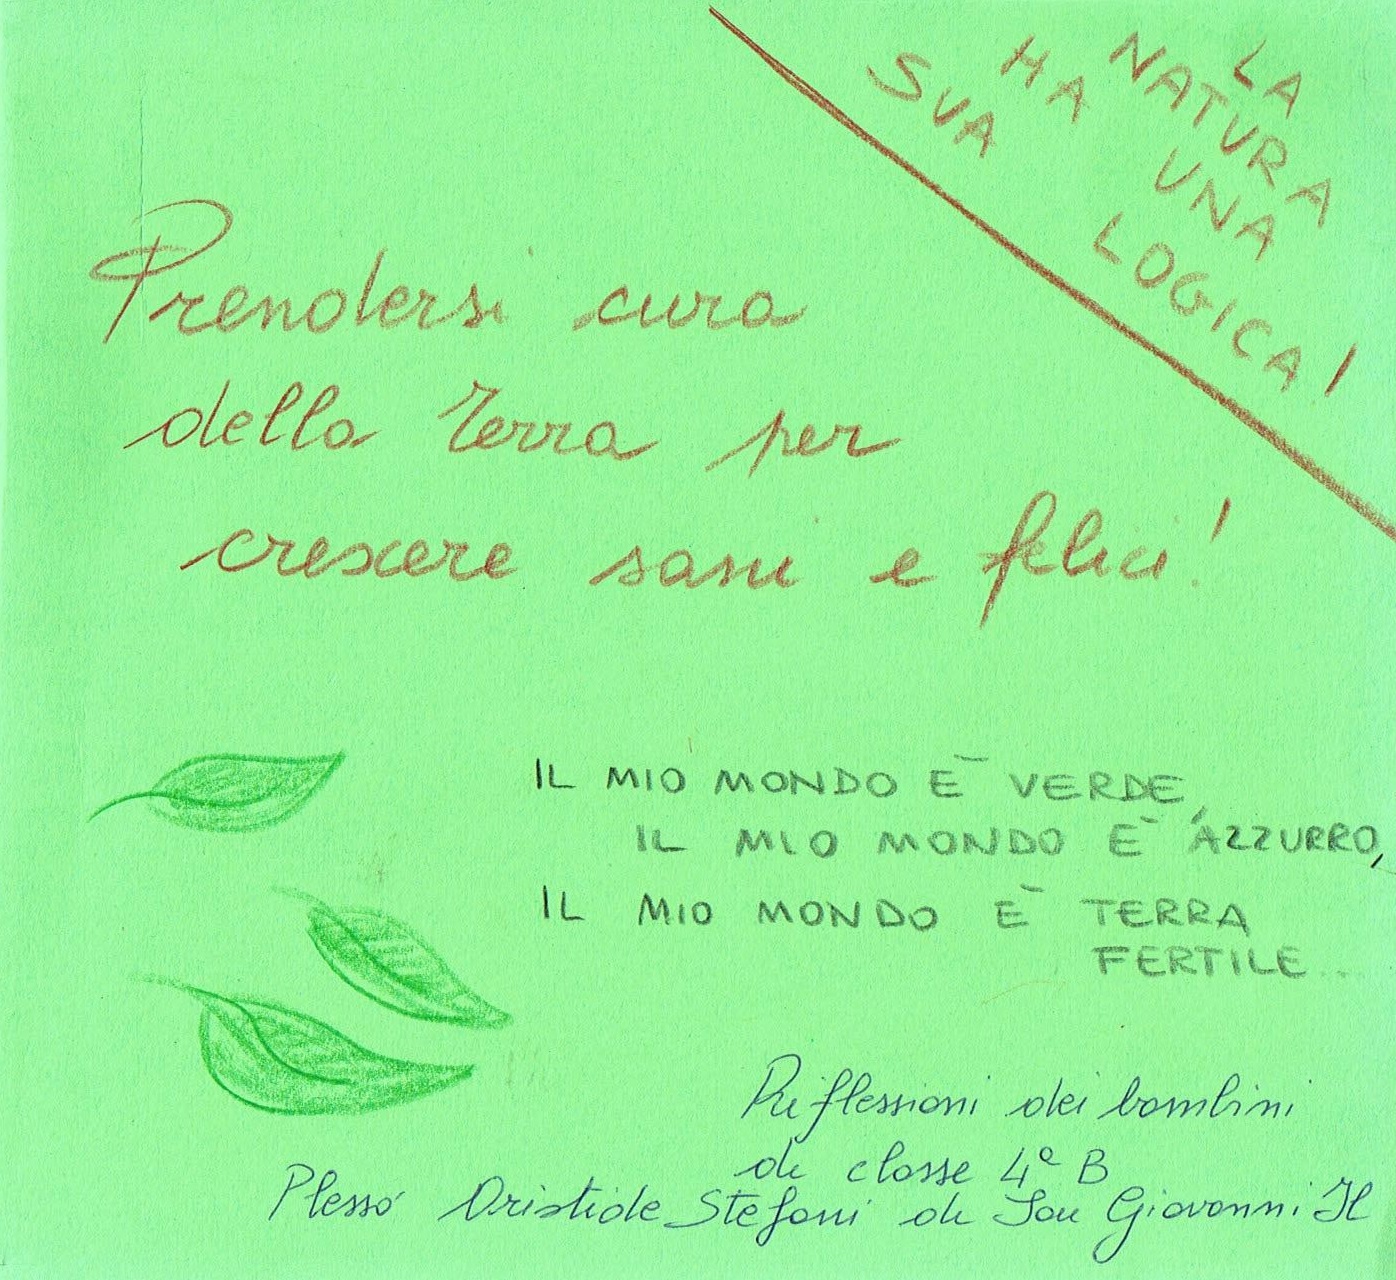 LA
NATURA
HA UNA
SUA LOGICA!
Prendersi cura
della Terra per
crescere sani e felici!
IL MIO MONDO È VERDE,
IL MIO MONDO È AZZURRO,
IL MIO MONDO È TERRA
FERTILE...
Riflessioni dei bambini
di classe 4ª B
Plesso Aristide Stefani di San Giovanni Il